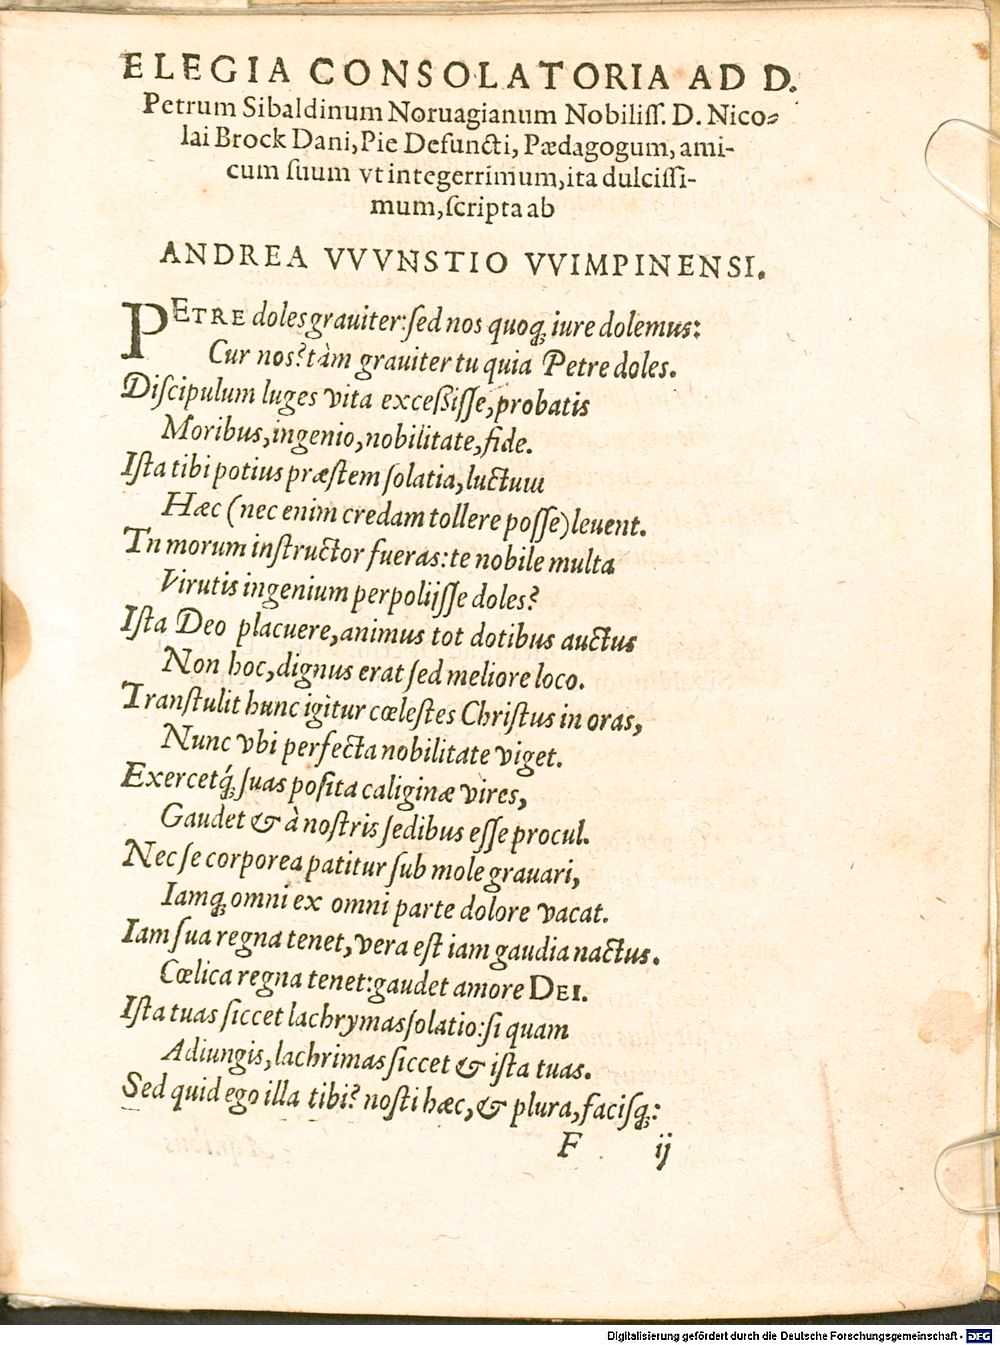 ELEGIA CONSOLATORIA AD D.
Petrum Sibaldinum Noruagianum Nobiliſſ. D. Nico-
lai Brock Dani, Pie Defuncti, Pædagogum, ami-
cum ſuum vt integerrimum, ita dulciſſi-
mum, ſcripta ab
ANDREA VVVNSTIO VVIMPINENSI.
PETRE doles grauiter: ſed nos quoq; iure dolemus:
Cur nos? tàm grauiter tu quia Petre doles.
Diſcipulum luges vita exceßiſſe, probatis
Moribus, ingenio, nobilitate, fide.
Iſta tibi potius præſtem ſolatia, luctum
Hæc (nec enim credam tollere poſſe) leuent.
Tn morum inſtructor fueras: te nobile multa
Virutis ingenium perpoliiſſe doles?
Iſta Deo placuere, animus tot dotibus auctus
Non hoc, dignus erat ſed meliore loco.
Tranſtulit hunc igitur cœleſtes Chriſtus in oras,
Nunc vbi perfecta nobilitate viget.
Exercetq́; ſuas poſita caliginæ vires,
Gaudet & à noſtris ſedibus eſſe procul.
Nec ſe corporea patitur ſub mole grauari,
Iamq; omni ex omni parte dolore vacat.
Iam ſua regna tenet, vera eſt iam gaudia nactus.
Cœlica regna tenet: gaudet amore DEI.
Iſta tuas ſiccet lachrymas ſolatio: ſi quam
Adiungis, lachrimas ſiccet & iſta tuas.
Sed quid ego illa tibi? noſti hæc, & plura, faciſq;:
F ij
Digitalisierung gefördert durch die Deutsche Forschungsgemeinschaft - DFG